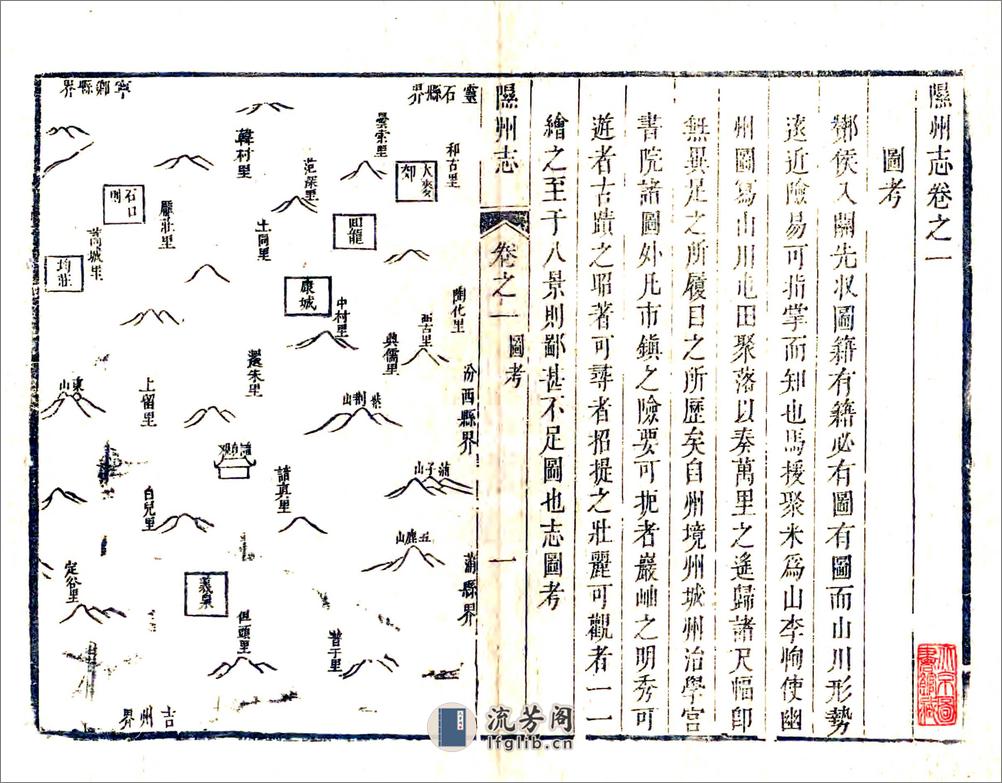 隰州志卷之一
圖考
酇侯入關先收圖籍有籍必有圖有圖而山川形勢
遠近險易可指掌而知也馬援聚米爲山李恂使幽
州圖寫山川屯田聚落以奏萬里之遙歸諸尺幅卽
無異足之所履目之所歷矣自州境州城州治學宮
書院諸圖外凡市鎮之險要可扼者巖岫之明秀可
遊者古蹟之昭著可尋者招提之壯麗可觀者一一
繪之至于八景則鄙甚不足圖也志圖考
隰州志
卷之一
圖考
一
靈石縣界
汾西縣界
蒲縣界
和古里
大麥郊
曇索里
回龍
范深里
土同里
韓村里
寧鄉縣界
石口
壓莊里
萬城里
均莊
康城
中村里
陶化里
西古里
典儒里
還朱里
紫荆山
上留里
東山
蒲子山
諸真里
五鹿山
白兒里
義泉
但頭里
普于里
定谷里
吉州界
流芳阁
lfglib.cn